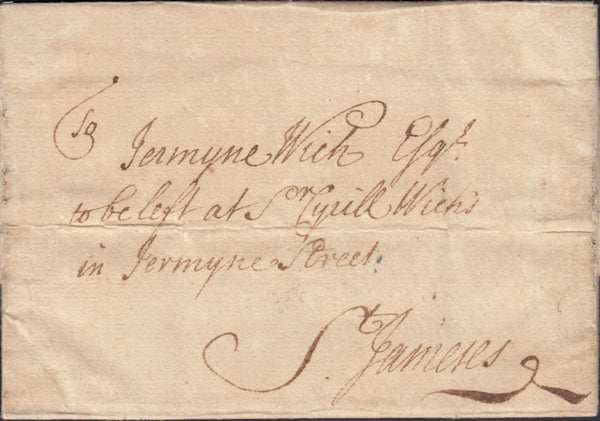 To
Jermyne Wich Esqr.
to be left at Sr Cyrill Wichs
in Jermyne Street.
St Jameses